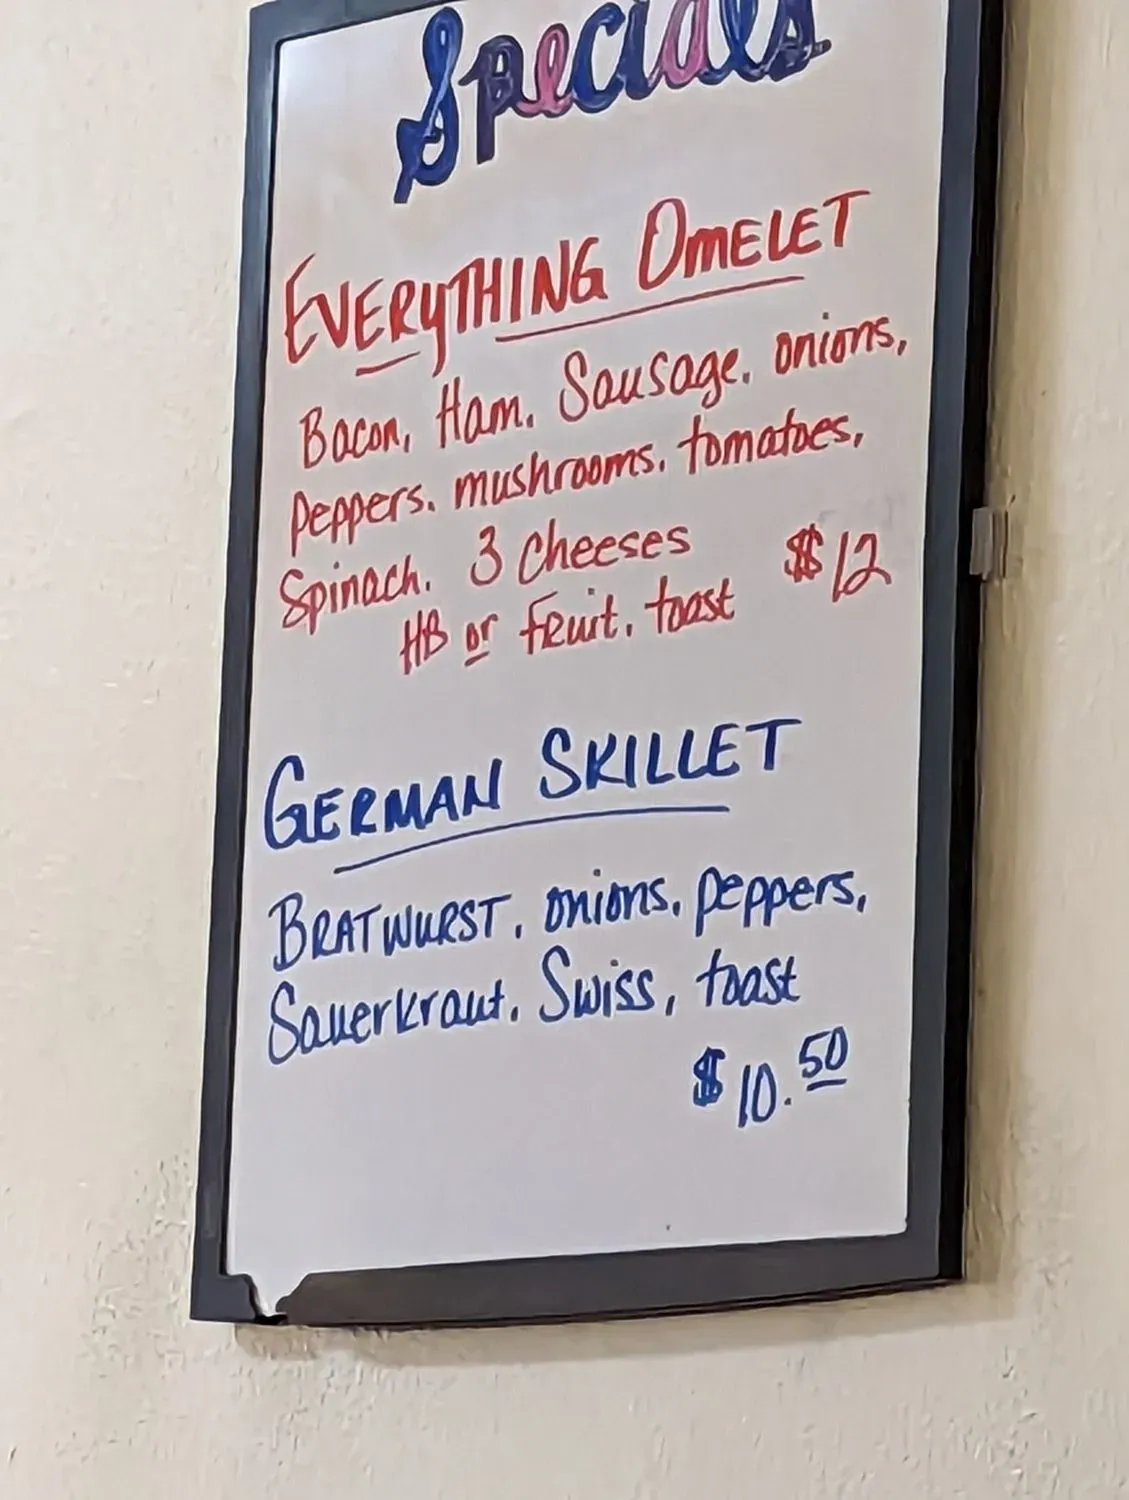 Specials
EVERYTHING OMELET
Bacon, Ham, Sausage, onions,
peppers, mushrooms, tomatoes,
Spinach, 3 cheeses $12
HB or fruit, toast
GERMAN SKILLET
BRATWURST, onions, peppers,
Sauerkraut, Swiss, toast
$10.50